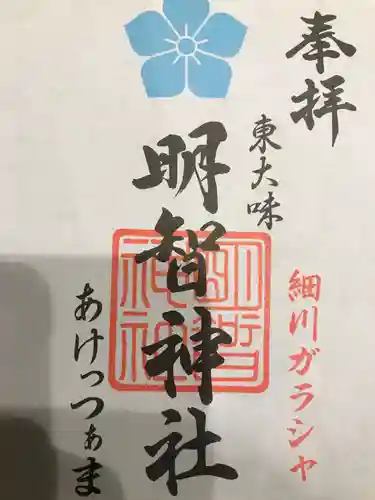 奉拝
東大味
細川ガラシャ
明智神社
明智
神社
あけっつぁま